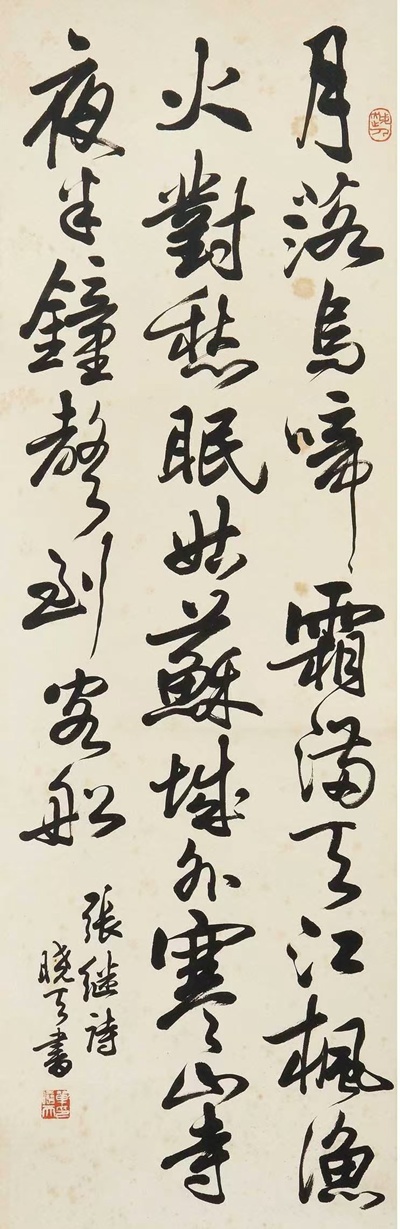 月落烏啼霜滿天江楓漁
火對愁眠姑蘇城外寒山寺
夜半鐘聲到客船
張继詩
曉天書